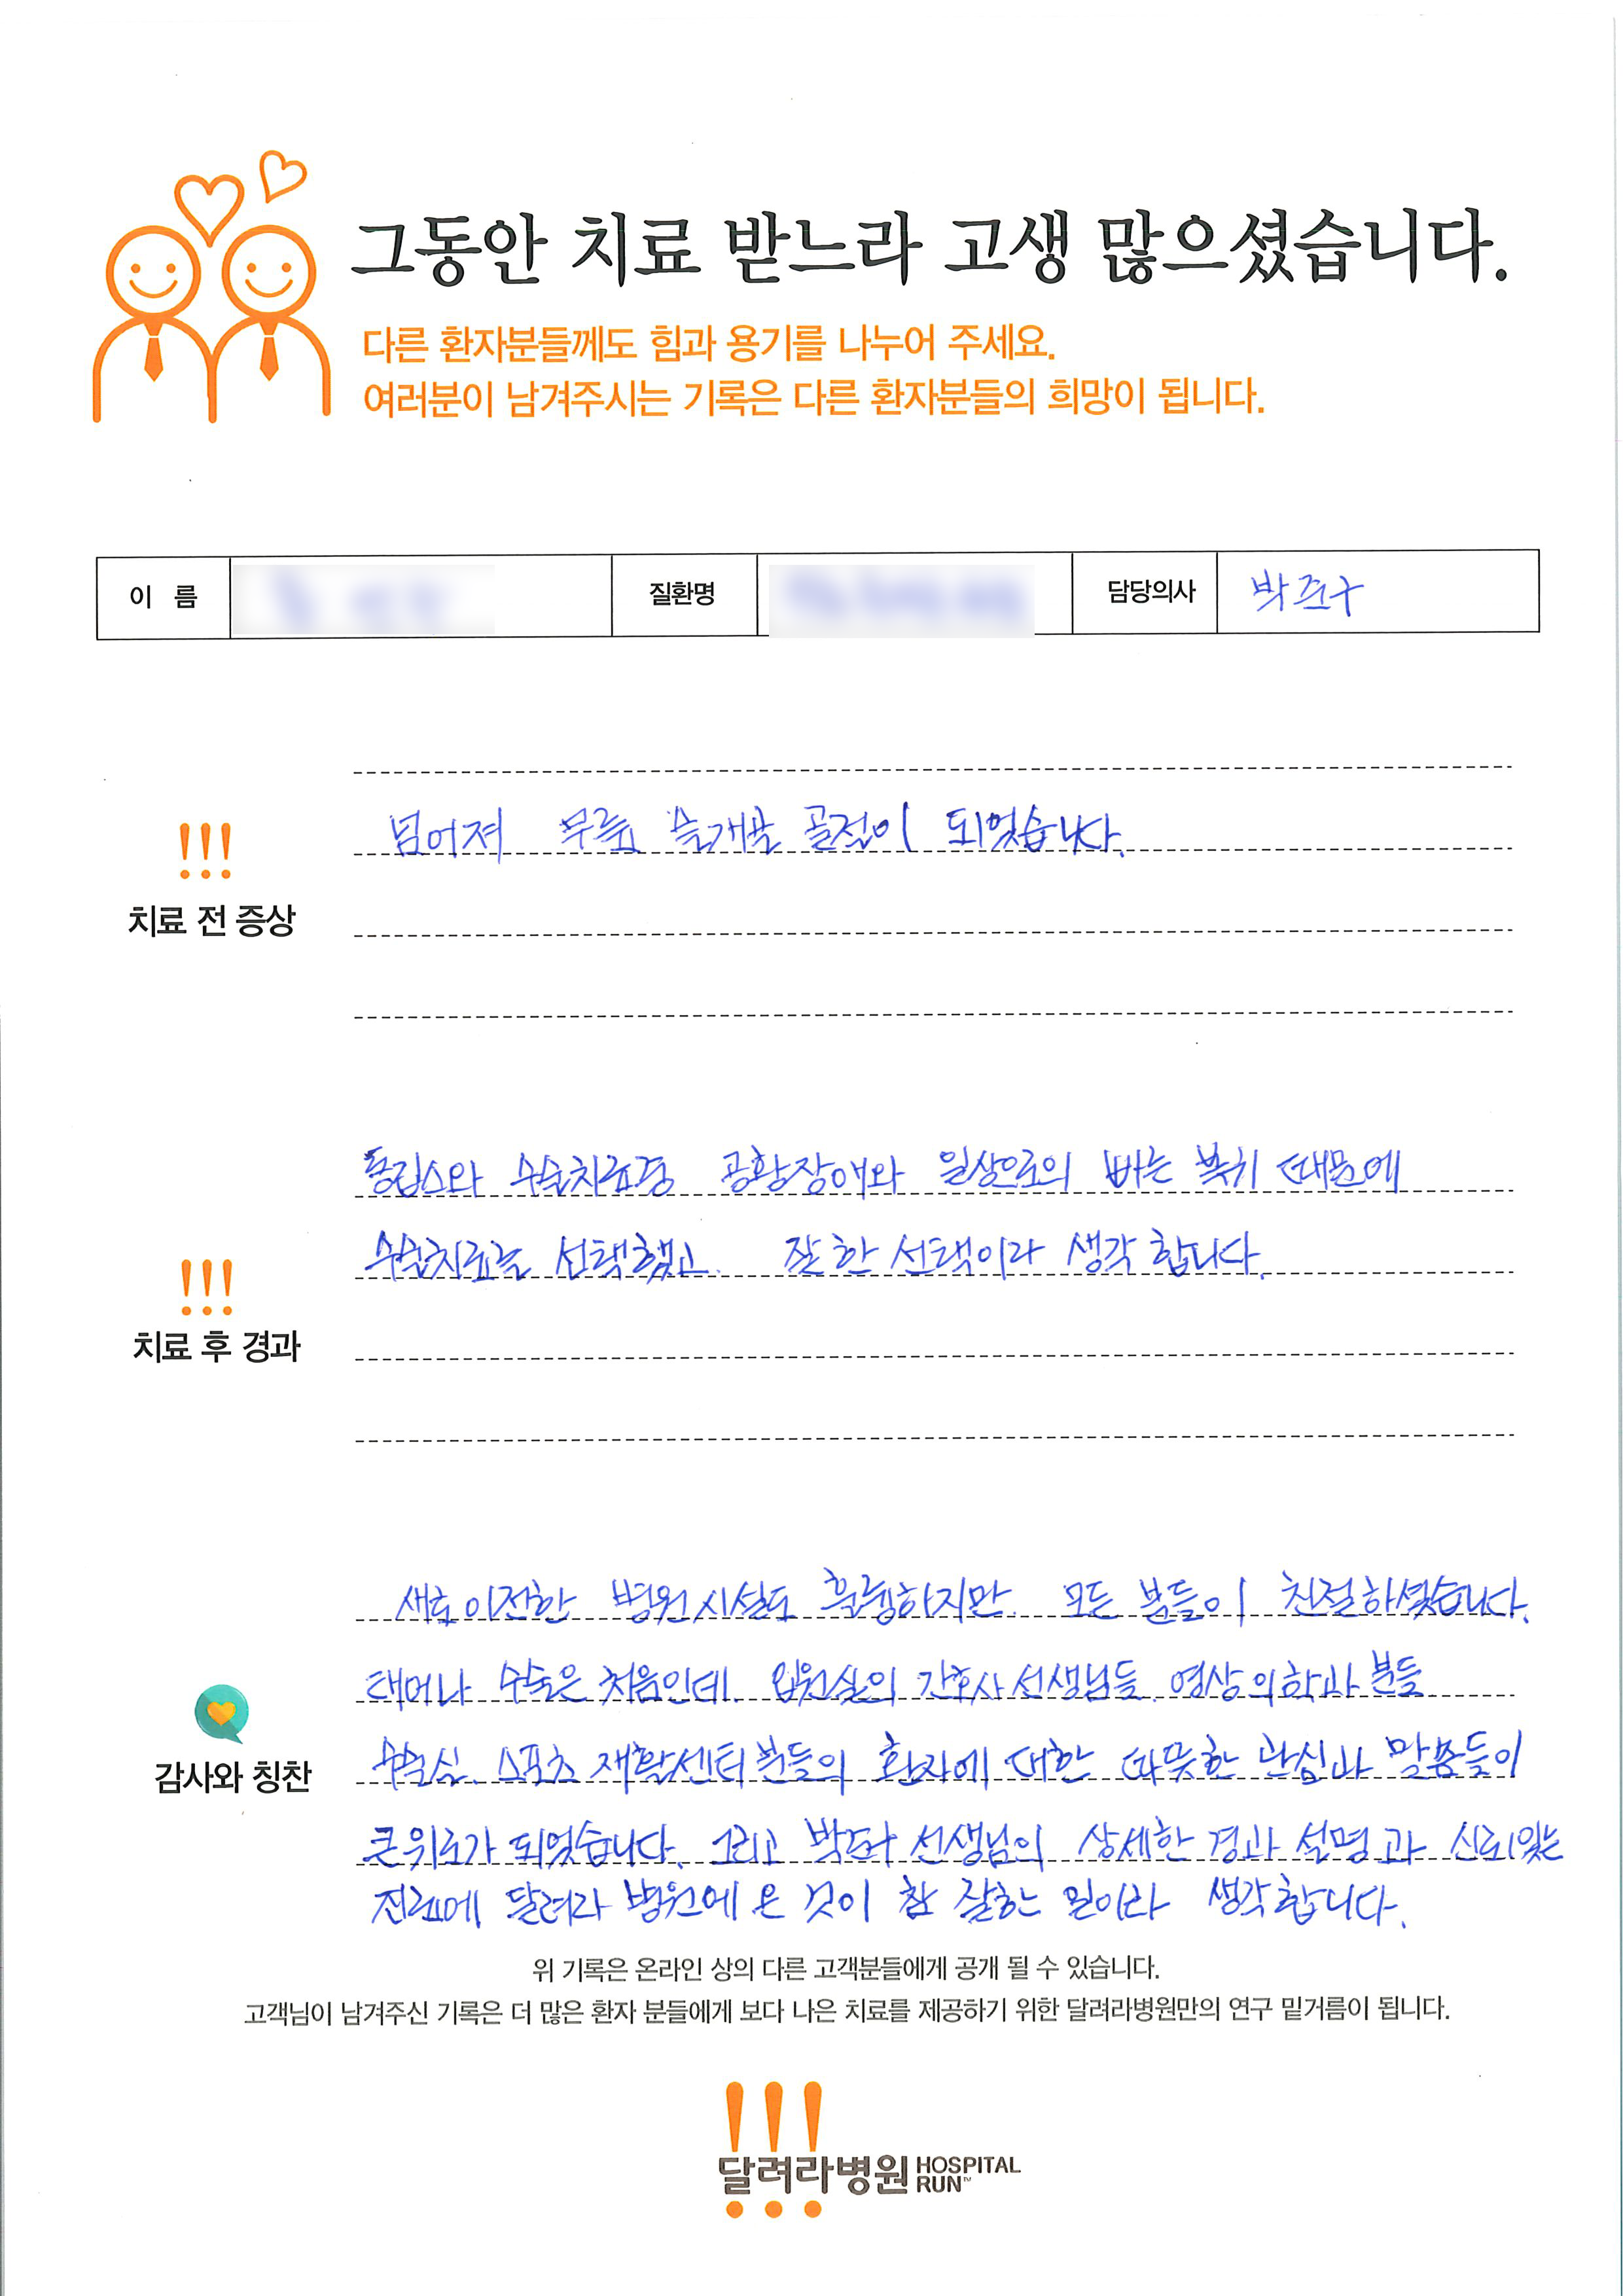 그동안 치료 받느라 고생 많으셨습니다.
다른 환자분들께도 힘과 용기를 나누어 주세요.
여러분이 남겨주시는 기록은 다른 환자분들의 희망이 됩니다.
이 름
질환명
담당의사 박준구
!!!
치료 전 증상
넘어져 무릎 슬개골 골절이 되었습니다.
!!!
치료 후 경과
통깁스와 수술치료중 공황장애와 일상으로의 빠른 복귀 때문에
수술치료를 선택했고. 잘한 선택이라 생각합니다.
감사와 칭찬
새로 이전한 병원시설도 훌륭하지만. 모든 분들이 친절하셨습니다.
태어나 수술은 처음인데. 입원실의 간호사 선생님들. 영상의학과 분들
수술실. 스포츠 재활센터분들의 환자에 대한 따뜻한 관심과 말씀들이
큰 위로가 되었습니다. 그리고 선생님의 상세한 경과 설명과 신뢰있는
진료에 달려라 병원에 온 것이 참 잘한 일이라 생각합니다.
위 기록은 온라인 상의 다른 고객분들에게 공개 될 수 있습니다.
고객님이 남겨주신 기록은 더 많은 환자 분들에게 보다 나은 치료를 제공하기 위한 달려라병원만의 연구 밑거름이 됩니다.
!!!
달려라병원 HOSPITAL RUN™